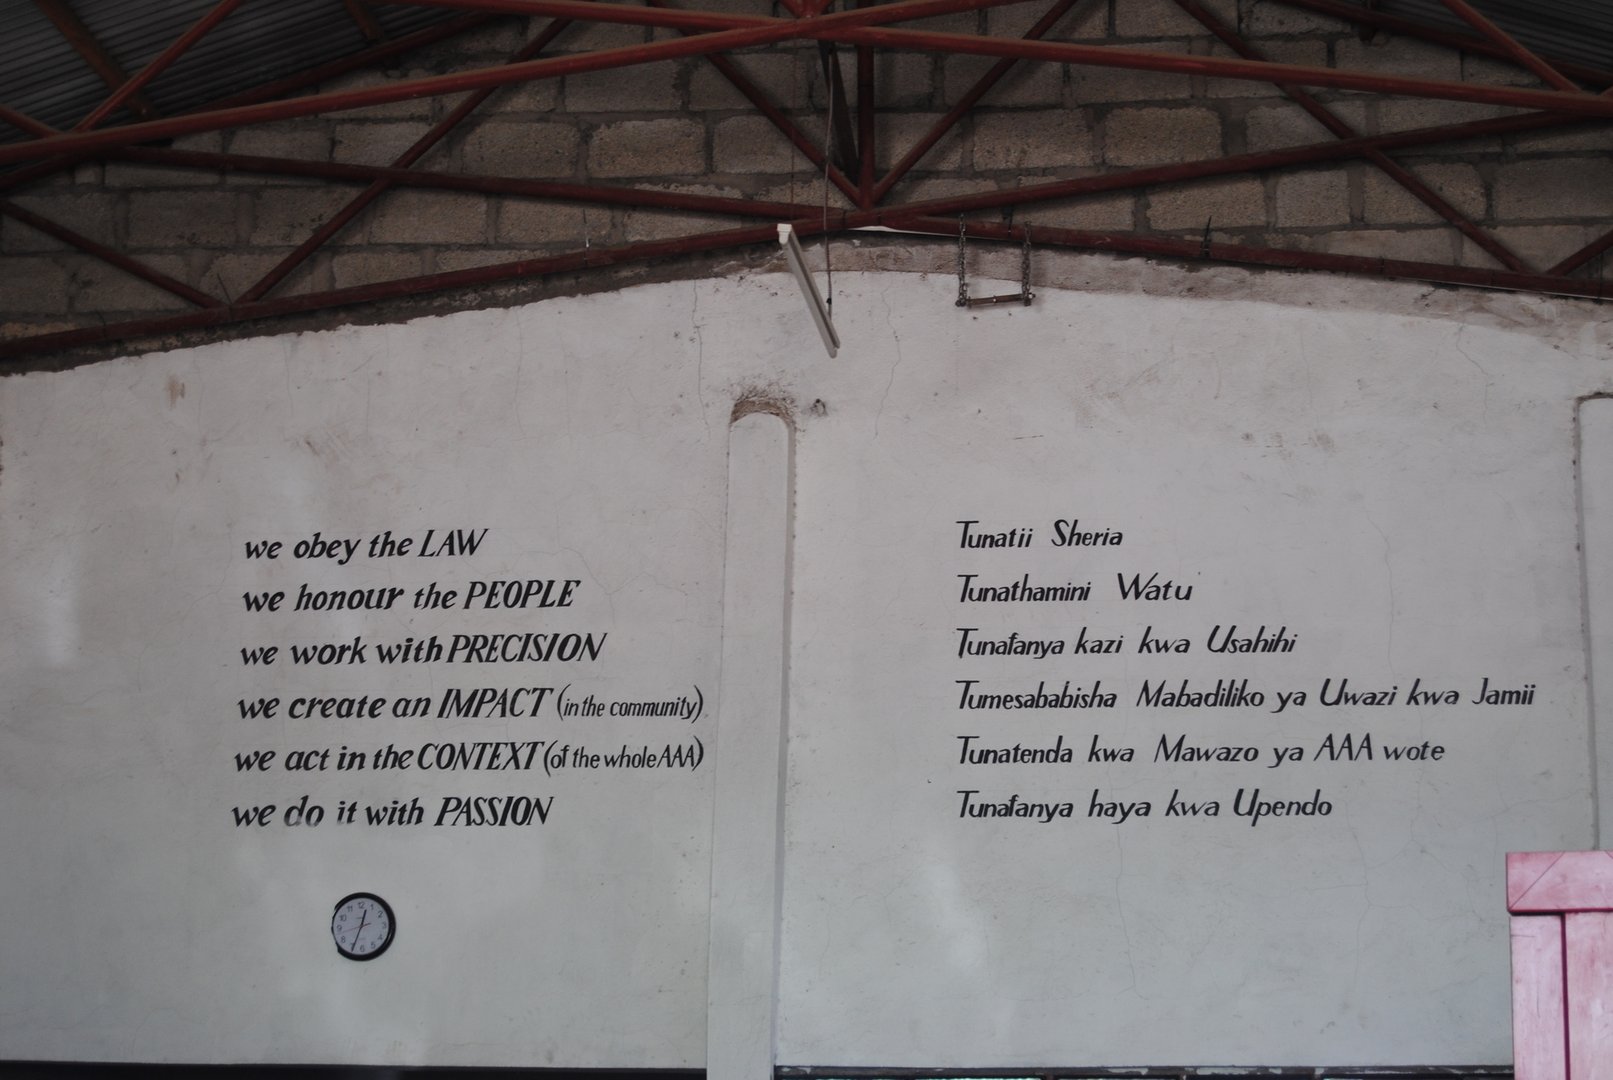 we obey the LAW
we honour the PEOPLE
we work with PRECISION
we create an IMPACT (in the community)
we act in the CONTEXT (of the whole AAA)
we do it with PASSION
Tunatii Sheria
Tunathamini Watu
Tunafanya kazi kwa Usahihi
Tumesababisha Mabadiliko ya Uwazi kwa Jamii
Tunatenda kwa Mawazo ya AAA wote
Tunafanya haya kwa Upendo
12
1
2
3
4
5
6
7
8
9
10
11